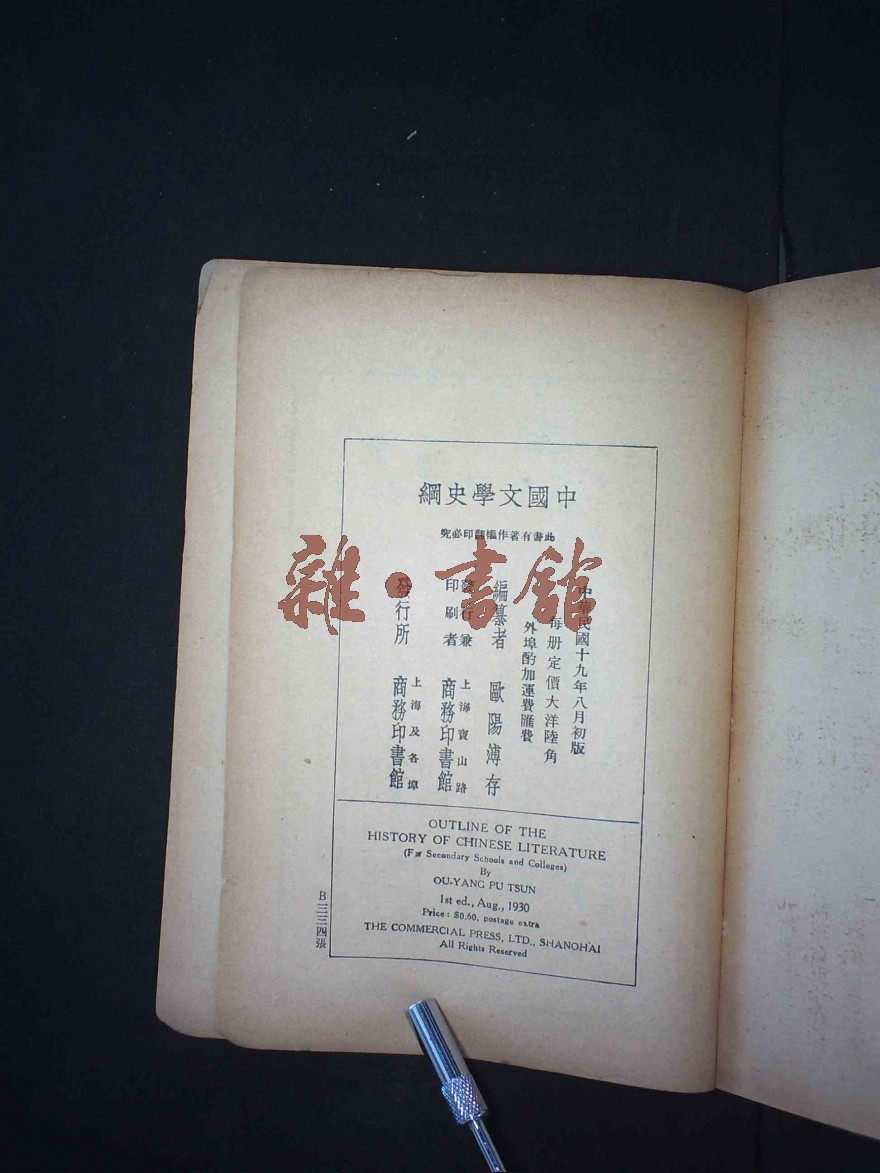 中國文學史綱
此書有著作權翻印必究
中華民國十九年八月初版
每册定價大洋陸角
外埠酌加運費匯費
編纂者 歐陽溥存
發行兼印刷者 上海寶山路 商務印書館
發行所 上海及各埠 商務印書館
雜·書館
OUTLINE OF THE
HISTORY OF CHINESE LITERATURE
(For Secondary Schools and Colleges)
By
OU-YANG PU TSUN
1st ed., Aug., 1930
Price: $0.60, postage extra
THE COMMERCIAL PRESS, LTD., SHANGHAI
All Rights Reserved